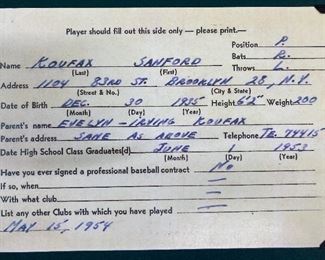 Player should fill out this side only — please print.—
Position P.
Bats R.
Name KOUFAX SANFORD Throws L.
(Last) (First)
Address 1104 83RD ST. BROOKLYN 28, N.Y.
(Street & No.) (City & State)
Date of Birth DEC. 30 1935 Height 6'2" Weight 200
(Month) (Day) (Year)
Parent's name EVELYN - IRVING KOUFAX
Parent's address SAME AS ABOVE Telephone TE. 74415
Date High School Class Graduates(d) JUNE 1 1953
(Month) (Day) (Year)
Have you ever signed a professional baseball contract? No
If so, when —
With what club —
List any other Clubs with which you have played —
MAY 15, 1954